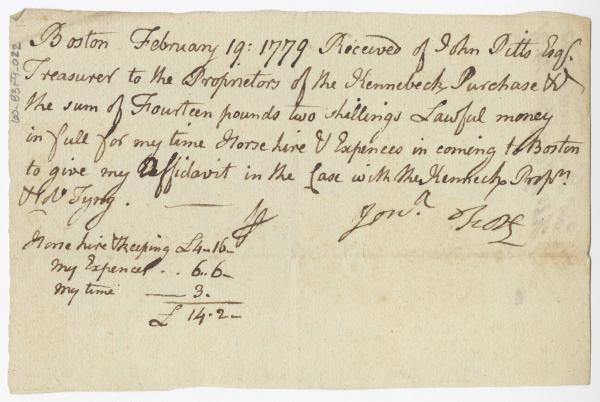 Boston February 19: 1779 Received of John Pitts Esqr.
Treasurer to the Proprietors of the Kennebeck Purchase &c
the sum of Fourteen pounds two shillings Lawful money
in full for my time Horse hire & Expences in coming to Boston
to give my Affidavit in the Case with the Kennebeck Propn.
& Tyng.
Jona.
Horse hire & Keeping £4-16-
My Expences .. 6..6-
My time — 3.
£ 14-2-
60-8359-022